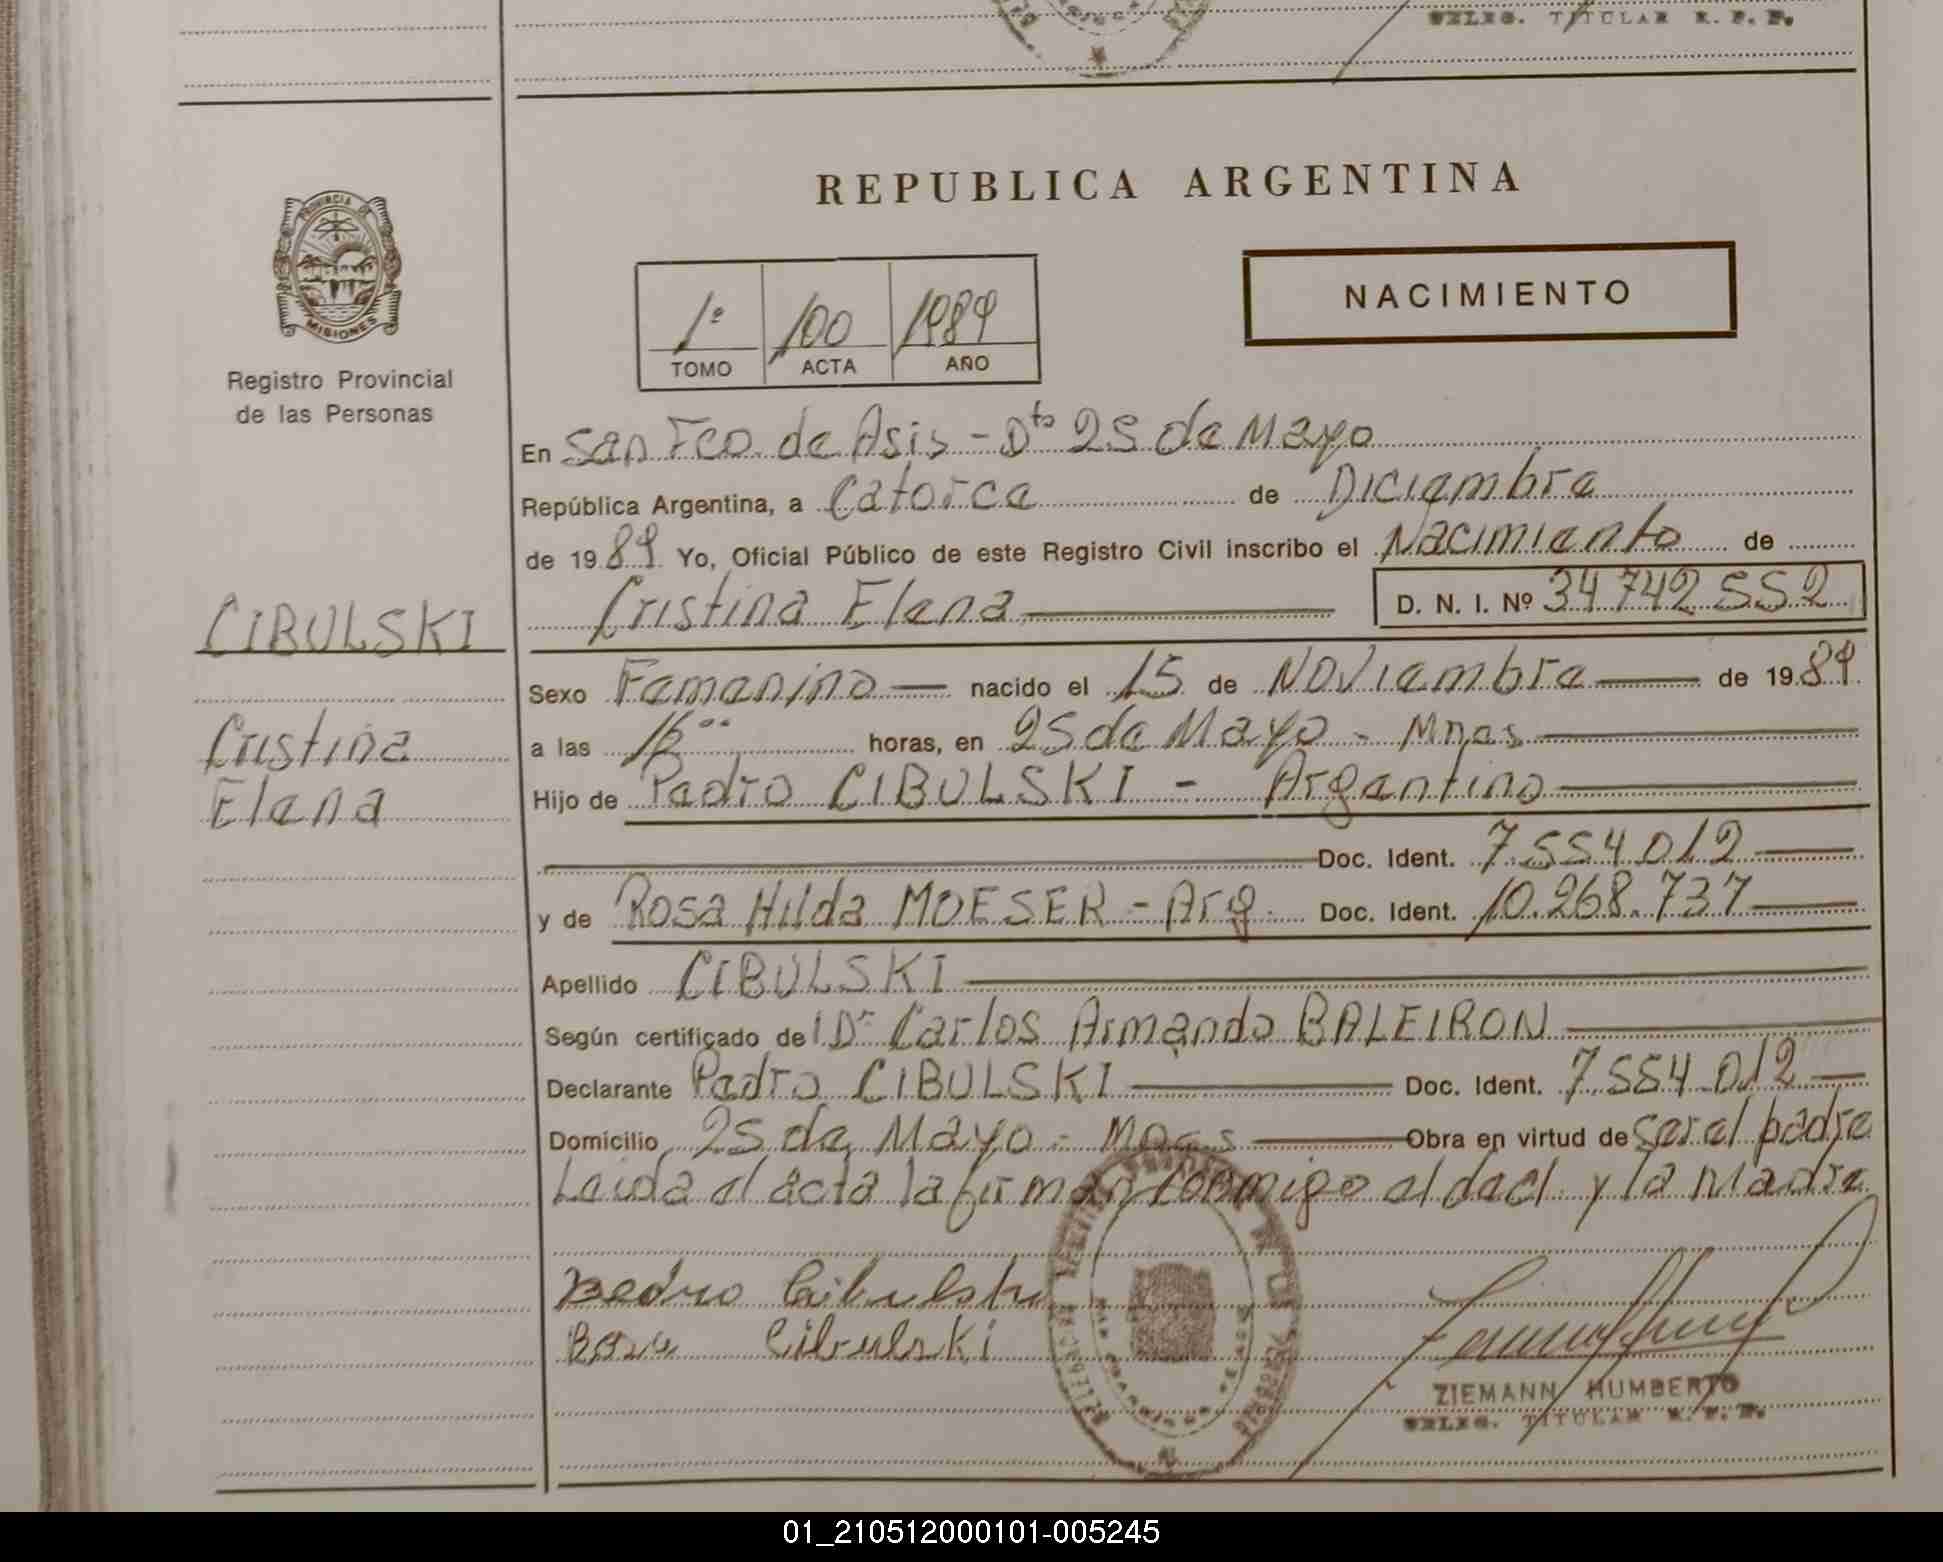 DELEG. TITULAR R. P. P.
REPUBLICA ARGENTINA
PROVINCIA DE
MISIONES
Registro Provincial
de las Personas
1º 100 1989
TOMO ACTA AÑO
NACIMIENTO
En San Fco. de Asis - Dto 25 de Mayo
República Argentina, a Catorce de Diciembre
de 1989 Yo, Oficial Público de este Registro Civil inscribo el Nacimiento de
Cristina Elena D. N. I. Nº 34742552
CIBULSKI
Cristina
Elena
Sexo Femenino nacido el 15 de Noviembre de 1989
a las horas, en 25 de Mayo - Mnes
Hijo de Pedro CIBULSKI - Argentino
Doc. Ident. 7.554.012
y de Rosa Hilda MOESER - Arg. Doc. Ident. 10.268.737
Apellido CIBULSKI
Según certificado del Dr Carlos Armando BALEIRON
Declarante Pedro CIBULSKI Doc. Ident. 7.554.012
Domicilio 25 de Mayo - Mnes Obra en virtud de ser el padre
Leida el acta la firman conmigo el decl. y la Madre
Pedro Cibulski
Rosa Cibulski
ZIEMANN HUMBERTO
DELEG. TITULAR R. P. P.
01_210512000101-005245